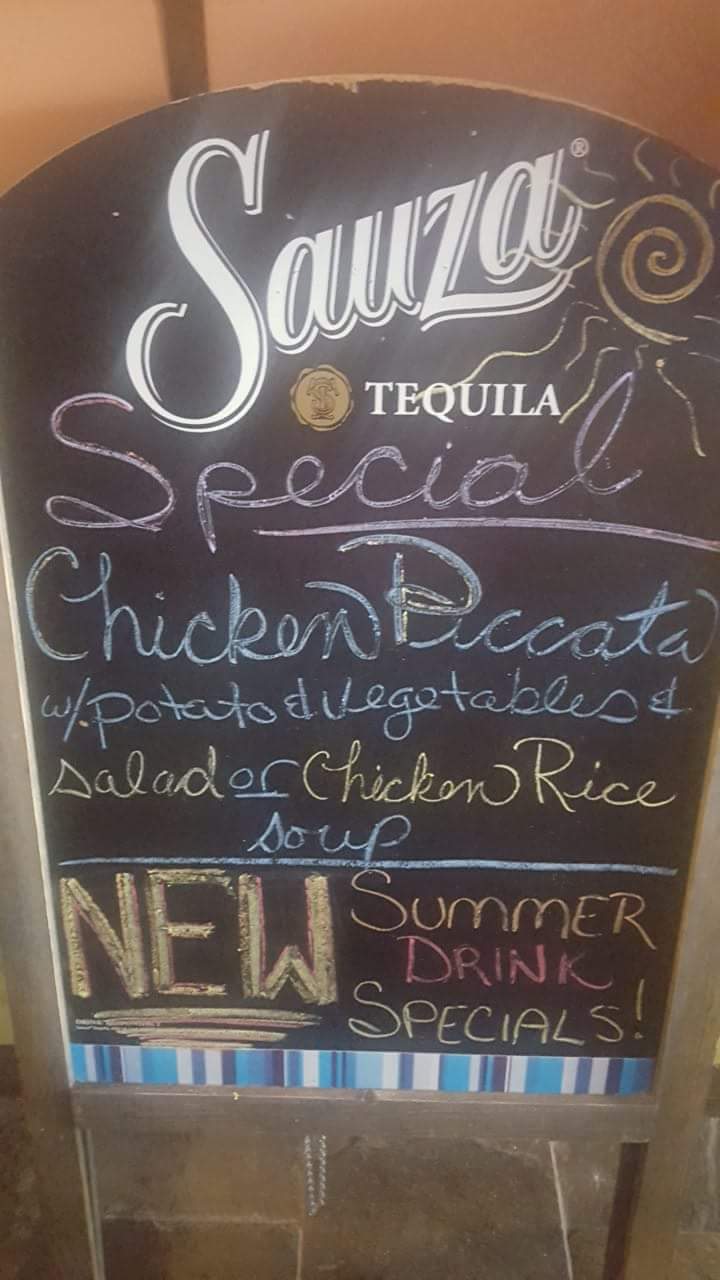 Sauza®
TEQUILA
Special
Chicken Piccata
w/potato & Vegetables &
salad or Chicken Rice
soup
NEW SUMMER
DRINK
SPECIALS!